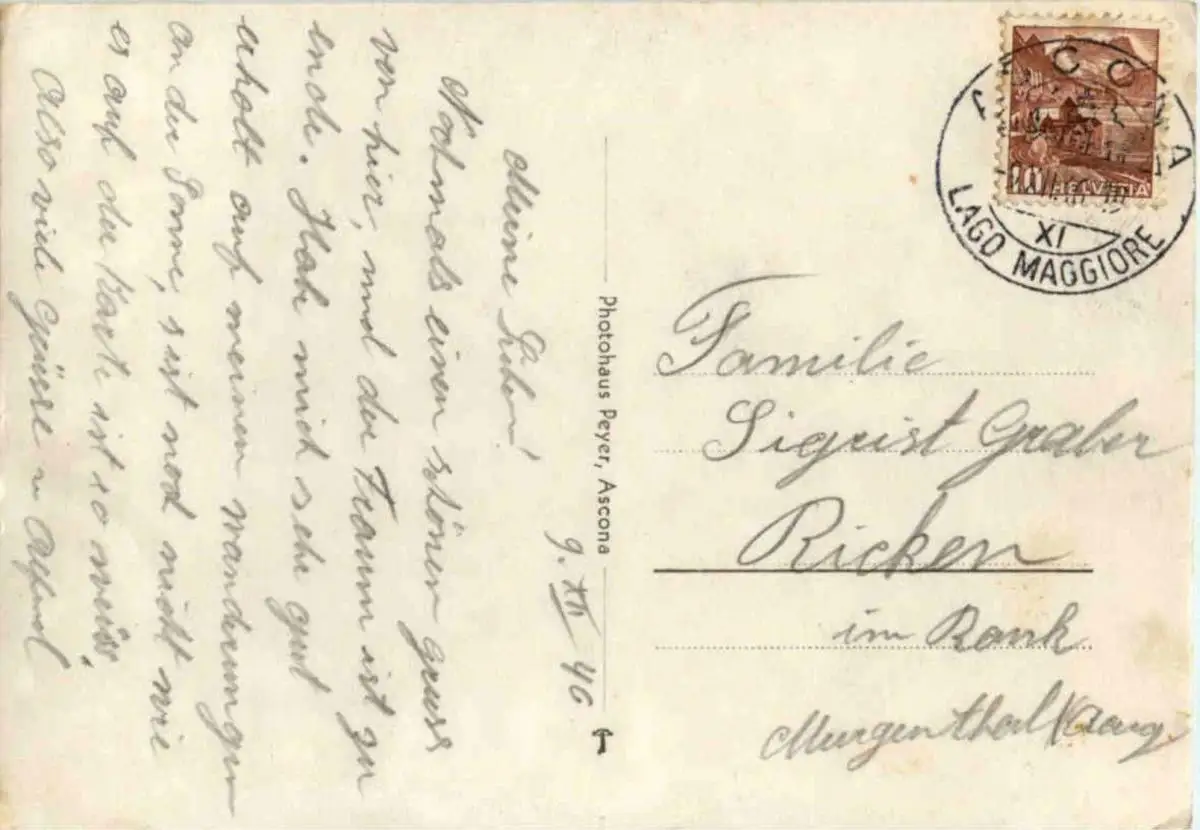 9. XII 46
Meine Lieben!
Nochmals einen schönen gruss
von hier, und der Traum ist zu
ende. Habe mich sehr gut
erholt auf meinen wanderungen
an der Sonne, s ist noch nicht wie
es auf der Karte ist so weiss
Also viele Grüsse v Alfred
Photohaus Peyer, Ascona
ASCONA
LAGO MAGGIORE
XI
10 HELVETIA
Familie
Sigrist Graber
Ricken
im Rank
Murgenthal Aarg.